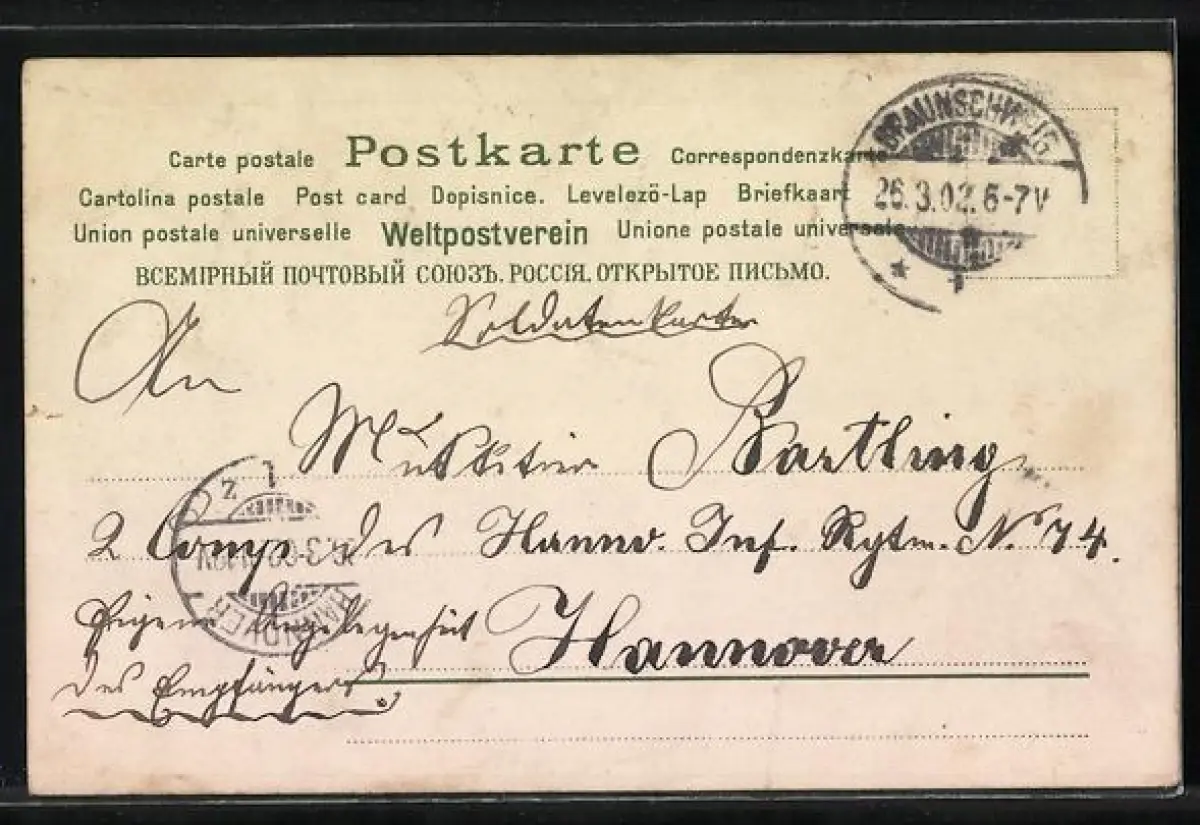 Carte postale Postkarte Correspondenzkarte
Cartolina postale Post card Dopisnice. Levelező-Lap Briefkaart
Union postale universelle Weltpostverein Unione postale universale
ВСЕМІРНЫЙ ПОЧТОВЫЙ СОЮЗЪ. РОССІЯ. ОТКРЫТОЕ ПИСЬМО.
BRAUNSCHWEIG
26.3.02.6-7V
1
Soldatenkarte
An
Musketier Bartling
2 Comp. des Hannov. Inf. Rgtm. No 74.
Eigene Angelegenheit Hannover
des Empfängers.
HANNOVER
1